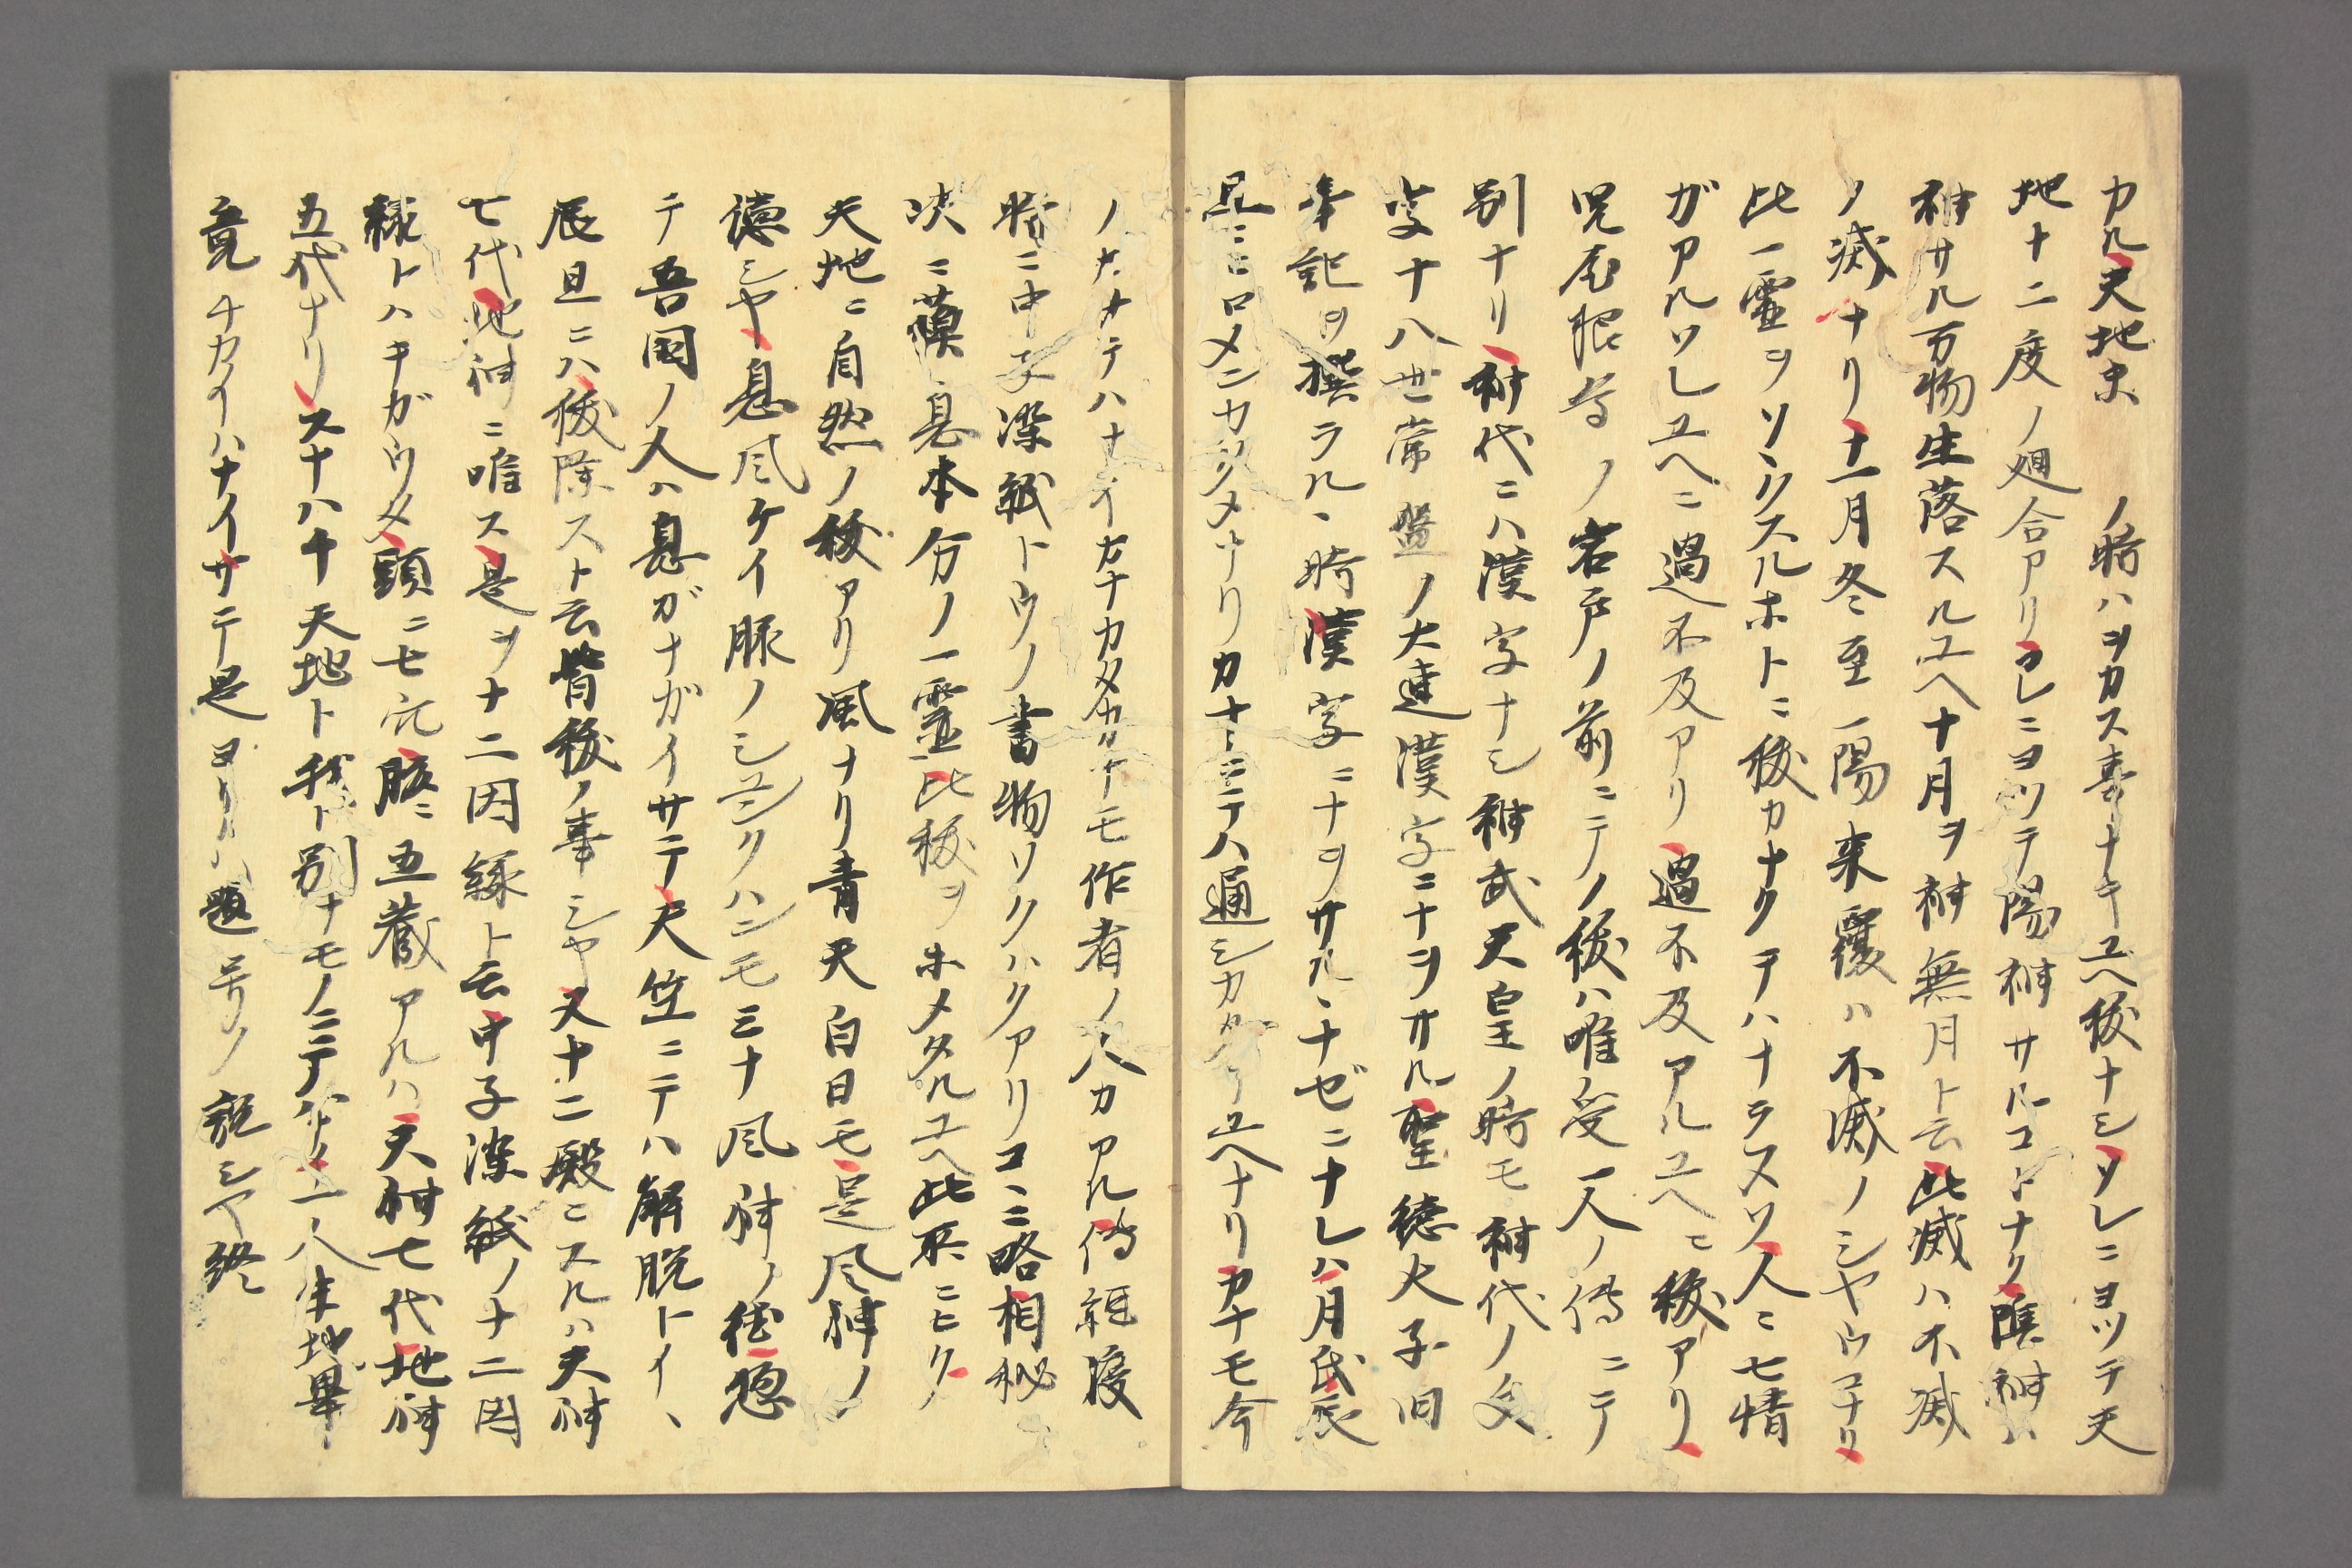 カル天地未 ノ時ハヲカス事ナキユヘ祓ナシソレニヨツテ天
地十二度ノ廻合アリコレニヨツテ陽神サルコトナク陰神ハ
神サル万物生落スルユヘ十月ヲ神無月ト云此滅ハ不滅
ノ滅ナリ十一月冬至一陽来覆ハ不滅ノシヤウコナリ
此一霊ヲソンクスルホトニ祓カナクテハナラヌソ人ニ七情
ガアルソレユヘニ過不及アリ過不及アルユヘニ祓アリ
児屋根尊ノ岩戸ノ前ニテノ祓ハ唯受一人ノ傳ニテ
別ナリ神代ニハ漢字ナシ神武天皇ノ時モ神代ノ文
字十八世常盤ノ大連漢字ニナヲサル聖徳大子旧
事記ヲ撰ラル、時漢字ニナヲサル、ナゼニナレハ月氏辰
旦ニヒロメンカタメナリカナニテハ通シカタキユヘナリカナモ今
ノ 作者ノ人カアル傳祖渡
時ニ中子染紙トウノ書物ソクハクアリコヽニ略相秘
決ニ蘂息本分ノ一霊此祓ヲホメタルユヘ此所ニヒク
天地ニ自然ノ祓アリ風ナリ青天白日モ是風神ノ
徳シヤ息風ケイ脈ノシユンクハンモミナ風神ノ徳惣
テ吾国ノ人ハ息ガナガイサテ天竺ニテハ解脱トイヽ
辰旦ニハ祓除スト云皆祓ノ事シヤ又十二殿ニスルハ天神
七代地神ニ唯ス是ヲ十二因縁ト云中子染紙ノ十二因
縁トハキガウタ頭ニ七穴腹ニ五蔵アルハ天神七代地神
五代ナリスナハチ天地ト我ト別ナモノニテハナイ 八生地畢
竟チカイハナイサテ是ヨリハ題号ノ説シヤ終